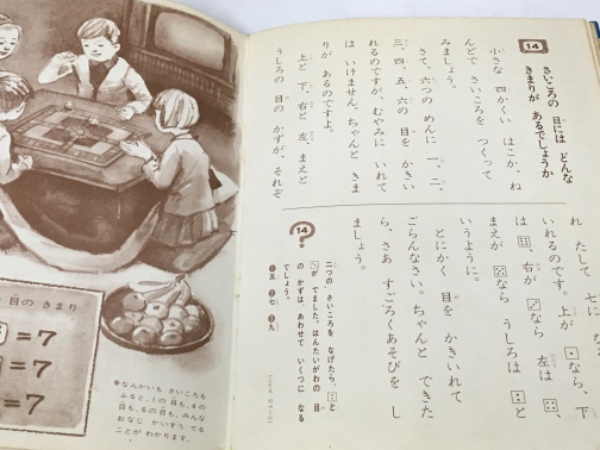 14
さいころの 目には どんな
きまりが あるでしょうか
小さな 四かくい はこか、ね
んどで さいころを つくって
みましょう。
さて、六つの めんに 一、二、
三、四、五、六の 目を かきい
れるのですが、むやみに いれて
は いけません。ちゃんと きま
りが あるのですよ。
上と 下、右と 左、まえと
うしろの 目の かずが、それぞ
れ たして 七に な
いれるのです。上が ⚀なら、下
は ⚅、右が ⚂なら 左は ⚃、
まえが ⚄なら うしろは ⚁と
いうように。
とにかく 目を かきいれて
ごらんなさい。ちゃんと できた
ら、さあ すごろくあそびを し
ましょう。
14
二つの さいころを なげたら、⚁と
⚂が でました。はんたいがわの 目
の かずは、あわせて いくつに なる
でしょう。
❶五 ❷七 ❸九
目の きまり
=7
=7
=7
●なんかいも さいころを
ふると、1の目も、4の
目も、6の目も、みんな
おなじ かいすう でる
ことが わかります。